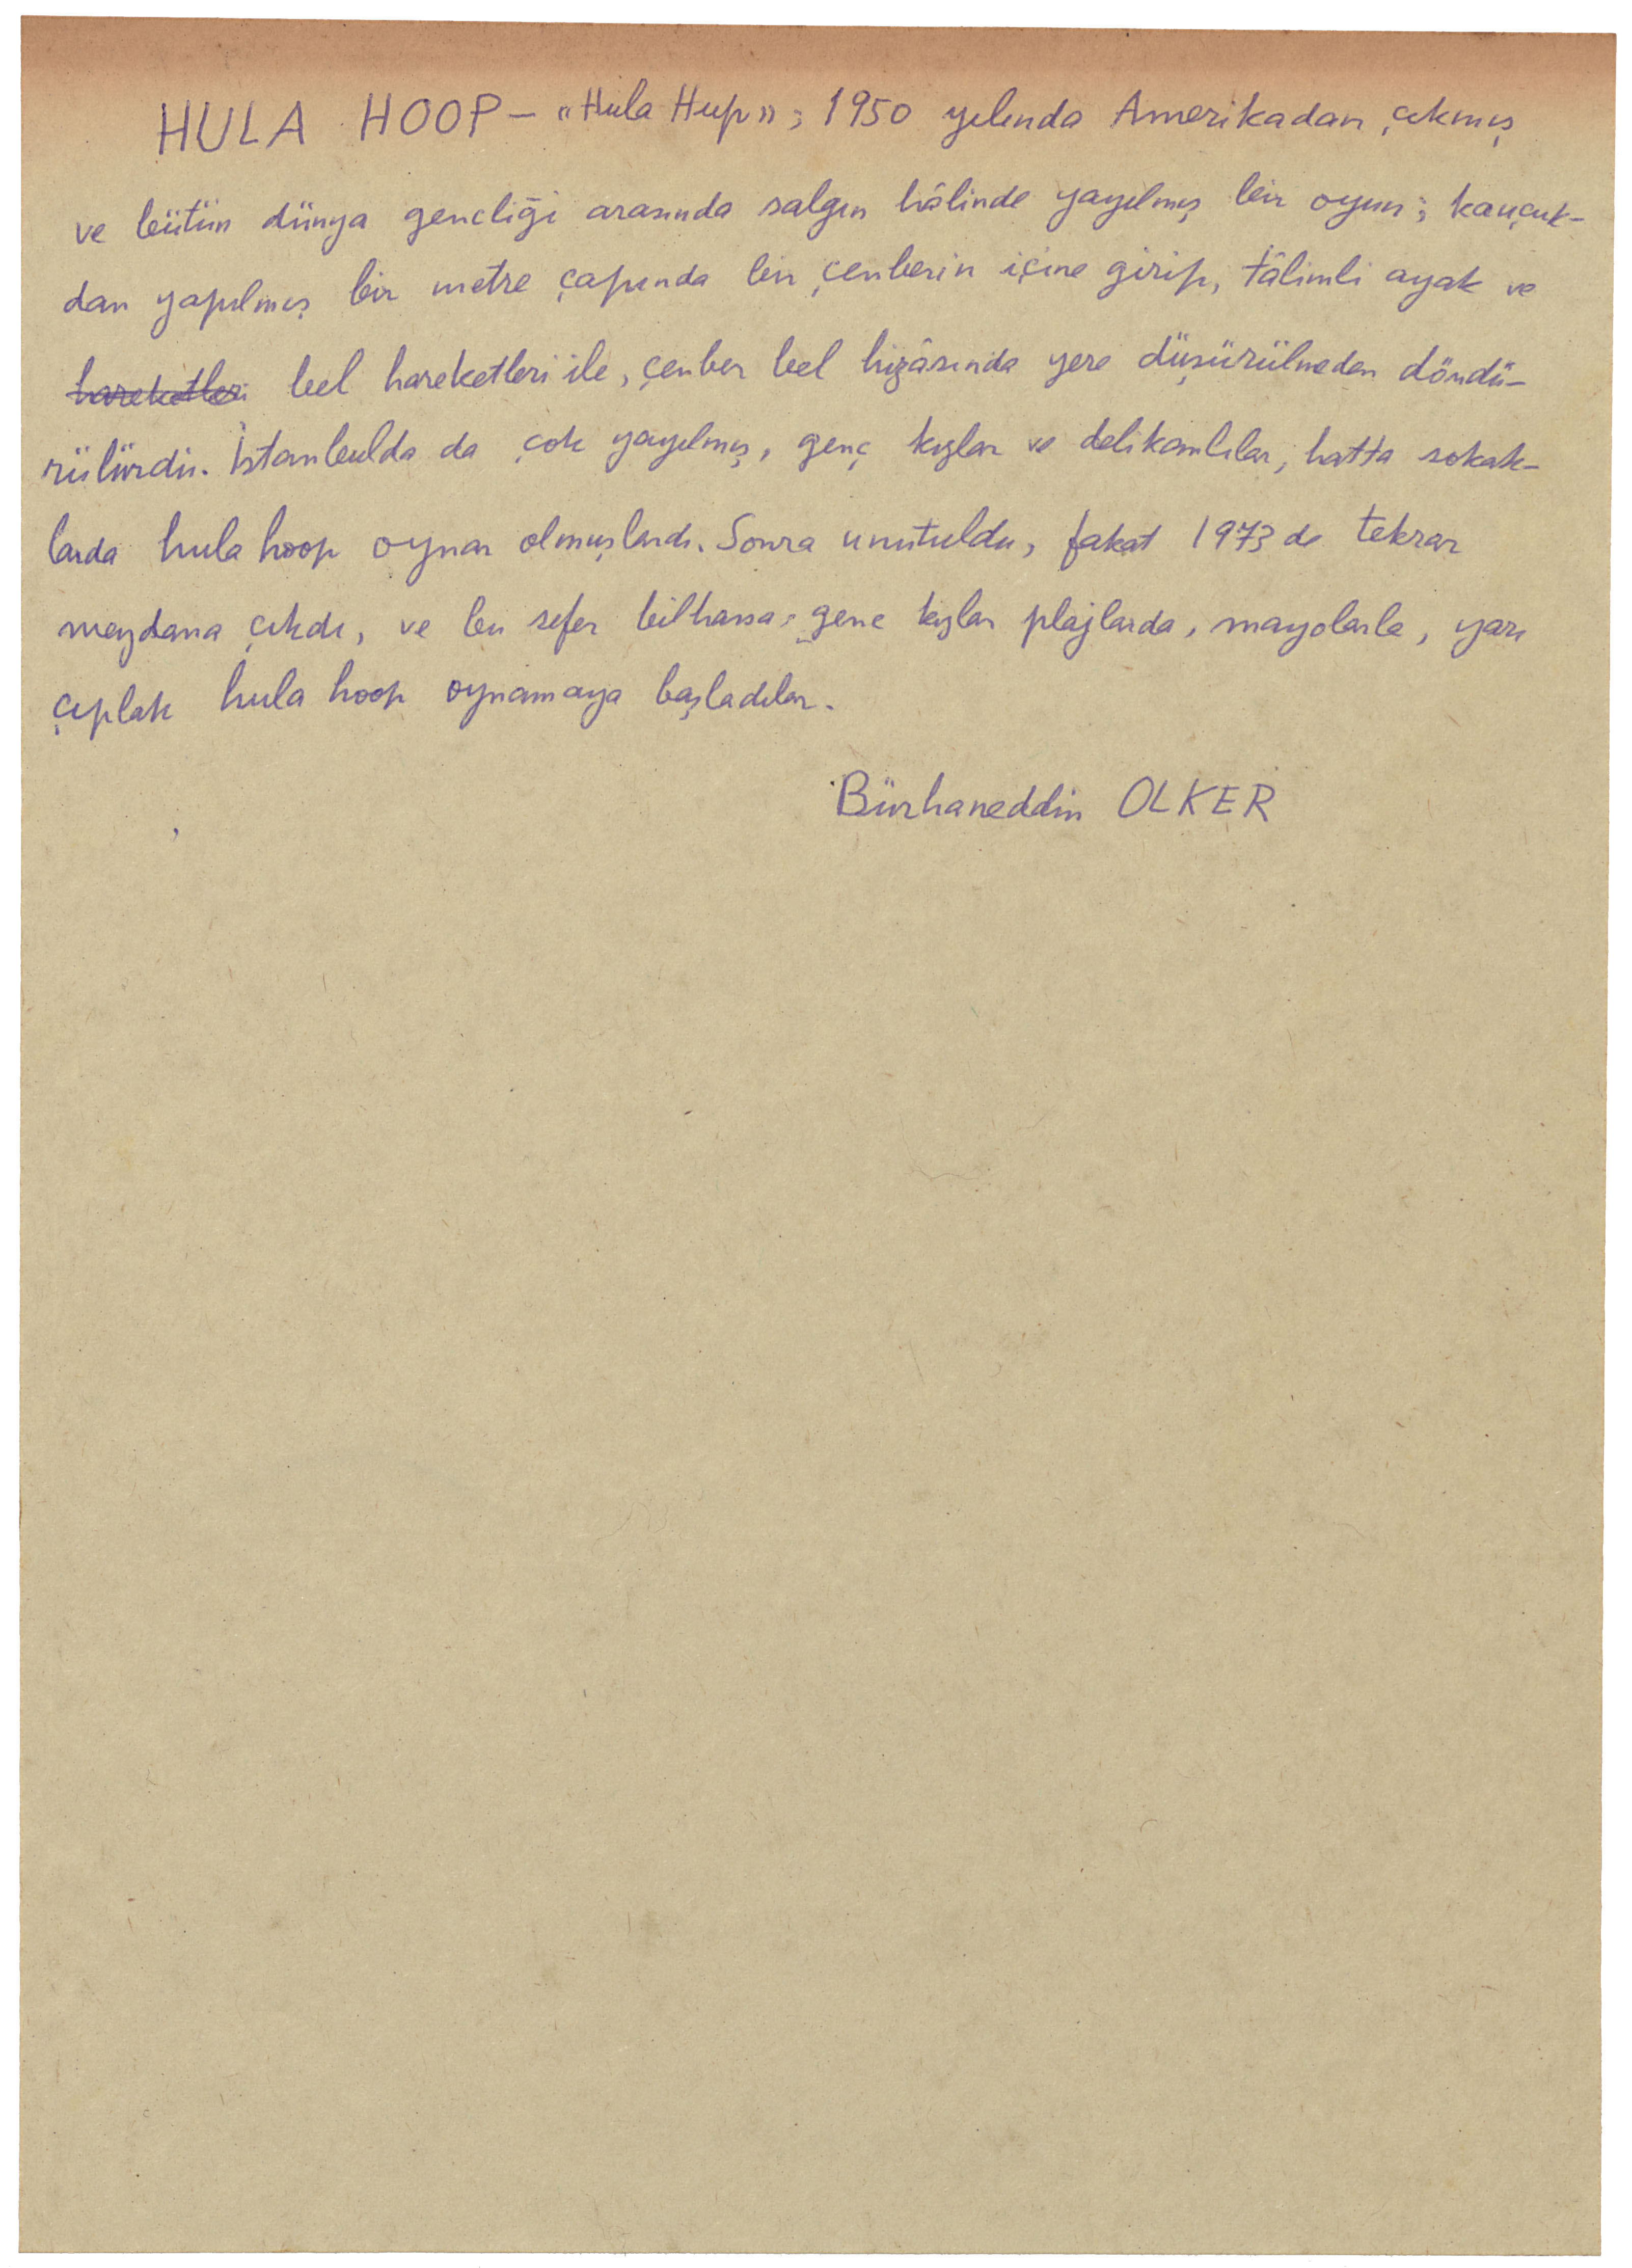 HULA HOOP — «Hula Hup»; 1950 yılında Amerikadan çıkmış
ve bütün dünya gencliği arasında salgın hâlinde yayılmış bir oyun; kauçuk-
dan yapılmış bir metre çapında bir çenberin içine girip, tâlimli ayak ve
hareketleri bel hareketleri ile, çenber bel hizâsında yere düşürülmeden döndü-
rülürdü. İstanbulda da çok yayılmış, genç kızlar ve delikanlılar, hatta sokak-
larda hula hoop oynar olmuşlardı. Sonra unutuldu, fakat 1973 de tekrar
meydana çıkdı, ve bu sefer bilhassa genc kızlar plajlarda, mayolarla, yarı
çıplak hula hoop oynamaya başladılar.
Bürhaneddin OLKER